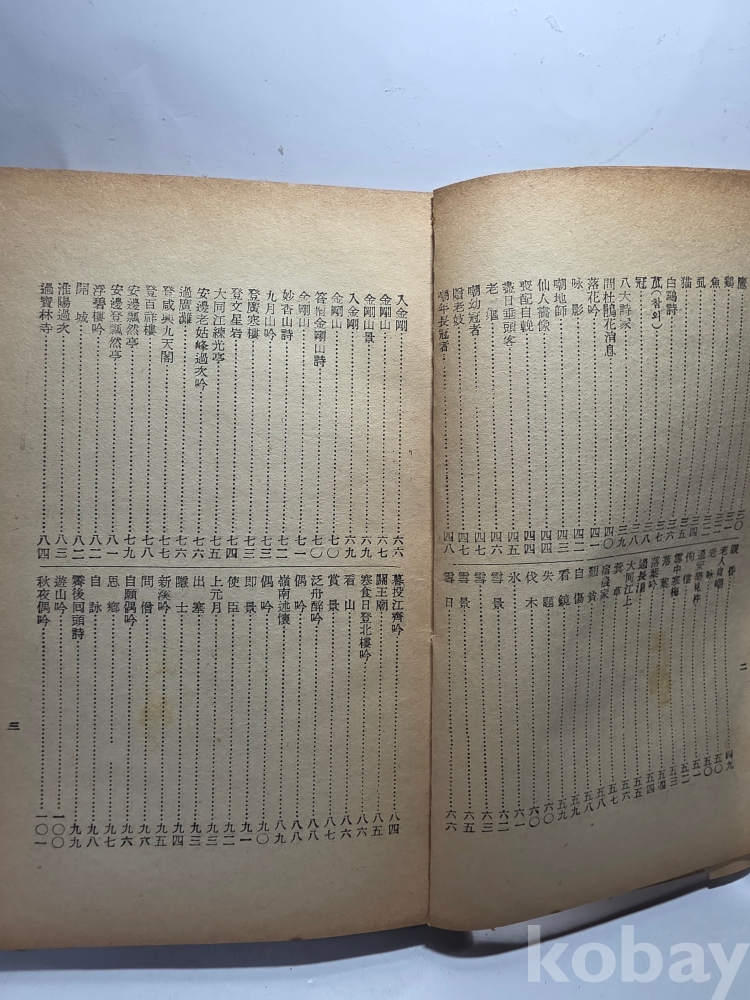 鷹……三〇
鷄……三一
魚……三二
猫……三四
虱……三五
白鷗詩……三六
苽(참외)……三七
冠……三八
八大詩家……三九
問杜鵑花消息……四〇
落花吟……四一
咏影……四三
嘲地師……四三
仙人畵像……四五
喪配自輓……四四
盡日垂頭客……四五
老嫗……四六
嘲幼冠者……四七
贈老妓……四七
嘲年長冠者……四八
老人自嘲……五〇
老吟……五〇
過安樂見忤……五一
佝僂……五二
雪中寒梅……五三
落葉……五四
落葉吟……五四
過長湍……五五
大同江上……五六
蓑草……五七
宿農家……五八
艱貧……五八
自傷……五九
看鏡……五九
失題……六〇
伐木……六〇
氷……六二
雪景……六三
雪景……六五
雪日……六六
二
入金剛……六六
金剛山……六七
金剛山景……六九
入金剛……六九
金剛山……七〇
答僧金剛山詩……七〇
金剛山……七一
妙香山詩……七二
九月山吟……七三
登廣寒樓……七三
登文星岩……七四
大同江練光亭……七五
安邊老姑峰過次吟……七六
過廣灘……七六
登咸興九天閣……七七
登百祥樓……七八
安邊飄然亭……七九
安邊登飄然亭……八一
浮碧樓吟……八二
開城……八二
淮陽過次……八三
過寶林寺……八四
暮投江齊吟……八四
關王廟……八五
寒食日登北樓吟……八六
看山……八六
賞景……八七
泛舟醉吟……八八
偶吟……八八
嶺南述懷……八九
偶吟……九〇
即景……九一
使臣……九二
上元月……九三
出塞……九三
隱士……九四
新溪吟……九五
問僧……九六
自顧偶吟……九六
思鄉……九七
自詠……九八
霽後回頭詩……九九
遊山吟……一〇〇
秋夜偶吟……一〇一
三
kobay